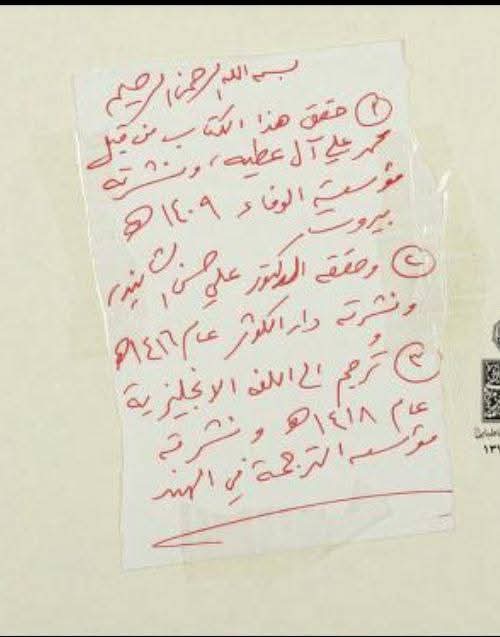 بسم الله الرحمن الرحيم
١ حقق هذا الكتاب من قبل
محمد علي آل عطيه، ونشرته
مؤسسة الوفاء ١٤٠٩ هـ
بيروت
٢ وحققه الدكتور علي حسن
ونشرته دار الكوثر عام ١٤١٦هـ
٣ تُرجم الى اللغة الانجليزية
عام ١٤١٨هـ ونشرته
مؤسسه الترجمة في الهند